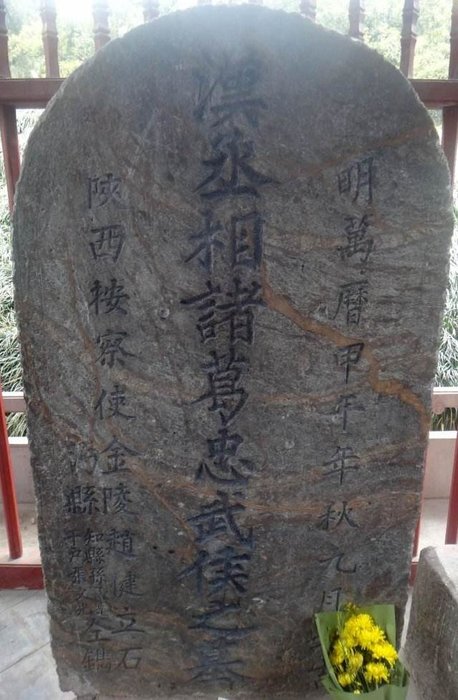 明萬曆甲午年秋九月
漢丞相諸葛忠武侯之墓
陝西按察使金陵趙健立石
沔縣
知縣
仝鐫